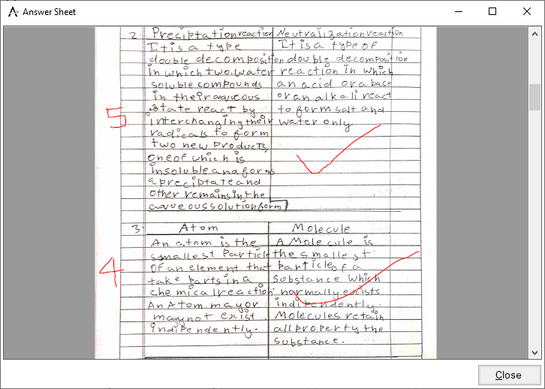 Answer Sheet
2. Preciptation reaction Neutralization reaction
It is a type It is a type of
double decomposition double decomposition
in which two water reaction in which
soluble compounds an acid or a base
in their aqueous or an alkali react
state react by to form salt and
5 interchanging their water only
radicals to form
two new products,
one of which is
insoluble and forms
a preciptate and
other remains in the
aqueous solution form
3. Atom Molecule
An atom is the A Molecule is
smallest Particle the smallest
4 of an element that particle of a
take parts in a substance which
chemical reaction normally exists
An Atom may or indipendently.
may not exist Molecules retain
indipendently. all property the
substance.
Close